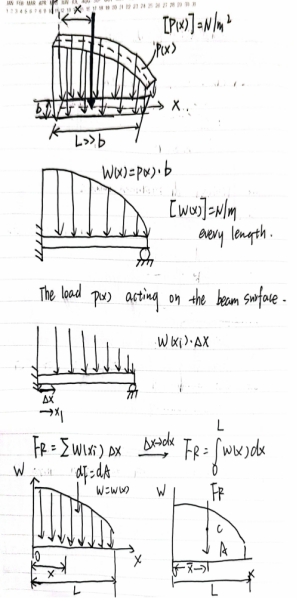 x
[P(x)]=N/m²
P(x)
b
x
L>>b
W(x)=P(x)·b
[W(x)]=N/m
every length.
The load p(x) acting on the beam surface.
W(xi)·Δx
Δx
x1
FR=∑W(xi)Δx Δx→dx FR=∫₀ᴸW(x)dx
dF=dA
W
W=W(x)
0
x
x
L
W
FR
C
A
x̄
x
L